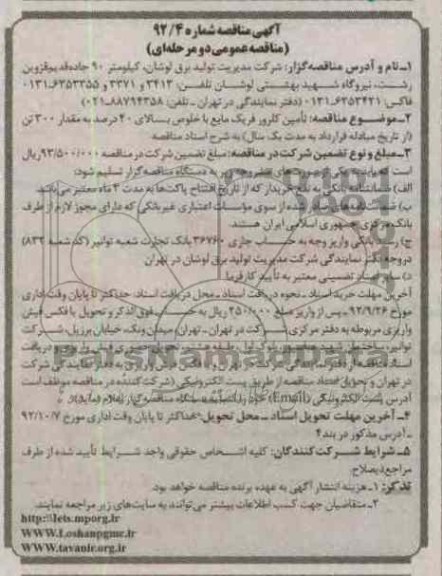 آگهی مناقصه شماره ۹۲/۴
(مناقصه عمومی دو مرحله‌ای)
۱ـ نام و آدرس مناقصه‌گزار: شرکت مدیریت تولید برق لوشان، کیلومتر ۹۰ جاده قدیم قزوین
رشت، نیروگاه شهید بهشتی لوشان تلفن: ۳۴۱۳ و ۳۳۷۱ و ۶۳۵۳۳۵۵-۰۱۳۱
فاکس: ۶۳۵۳۴۲۱-۰۱۳۱ (دفتر نمایندگی در تهران ـ تلفن: ۸۸۷۹۴۳۵۸-۰۲۱)
۲ـ موضوع مناقصه: تأمین کلرور فریک مایع با خلوص بالای ۴۰ درصد به مقدار ۳۰۰ تن
(از تاریخ مبادله قرارداد به مدت یک سال) به شرح اسناد مناقصه.
۳ـ مبلغ و نوع تضمین شرکت در مناقصه: مبلغ تضمین شرکت در مناقصه ۹۳/۵۰۰/۰۰۰ ریال
است که باید به یکی از صورت‌های مشروحه زیر به دستگاه مناقصه‌گزار تسلیم شود:
الف) ضمانتنامه بانکی به نفع خریدار که از تاریخ افتتاح پاکت‌ها به مدت ۳ ماه معتبر می‌باشد.
ب) ضمانت‌نامه‌های صادر شده از سوی مؤسات اعتباری غیر بانکی که دارای مجوز لازم از طرف
بانک مرکزی جمهوری اسلامی ایران هستند.
ج) رسید بانکی واریز وجه به حساب جاری ۳۶۷۶۰ بانک تجارت شعبه توانیر (کد شعبه ۸۳۲)
در وجه دفتر نمایندگی شرکت مدیریت تولید برق لوشان در تهران
د) سایر اسناد تضمینی معتبر به تأیید کارفرما
آخرین مهلت خرید اسناد ـ نحوه دریافت اسناد ـ محل دریافت اسناد: حداکثر تا پایان وقت اداری
مورخ ۹۲/۹/۲۶ ـ پس از واریز مبلغ ۴۵۰/۰۰۰ ریال به حساب فوق الذکر و تحویل یا فکس فیش
واریزی مربوطه به دفتر مرکزی شرکت در تهران ـ تهران، میدان ونک، خیابان برزیل، شرکت
توانیر، ساختمان شهید عباسپور، بلوک اول، طبقه هشتم، تحویل حضوری فیش واریزی و دریافت
اسناد مناقصه از دفتر نمایندگی شرکت در تهران و یا فکس فیش واریزی به دفتر نمایندگی شرکت
در تهران و تحویل اسناد مناقصه از طریق پست الکترونیکی (شرکت‌کننده در مناقصه موظف است
آدرس پست الکترونیکی (Email) خود را کتباً به دستگاه مناقصه‌گزار اعلام نماید).
۴ـ آخرین مهلت تحویل اسناد ـ محل تحویل: حداکثر تا پایان وقت اداری مورخ ۹۲/۱۰/۷
ـ آدرس مذکور در بند ۳
۵ـ شرایط شرکت‌کنندگان: کلیه اشخاص حقوقی واجد شرایط تأیید شده از طرف
مراجع ذیصلاح.
تذکر: ۱ـ هزینه انتشار آگهی به عهده برنده مناقصه خواهد بود.
۲ـ متقاضیان جهت کسب اطلاعات بیشتر می‌توانند به سایت‌های زیر مراجعه نمایند.
http://Iets.mporg.ir
WWW.Loshanpgmc.ir
WWW.tavanir.org.ir
ParsNamadData